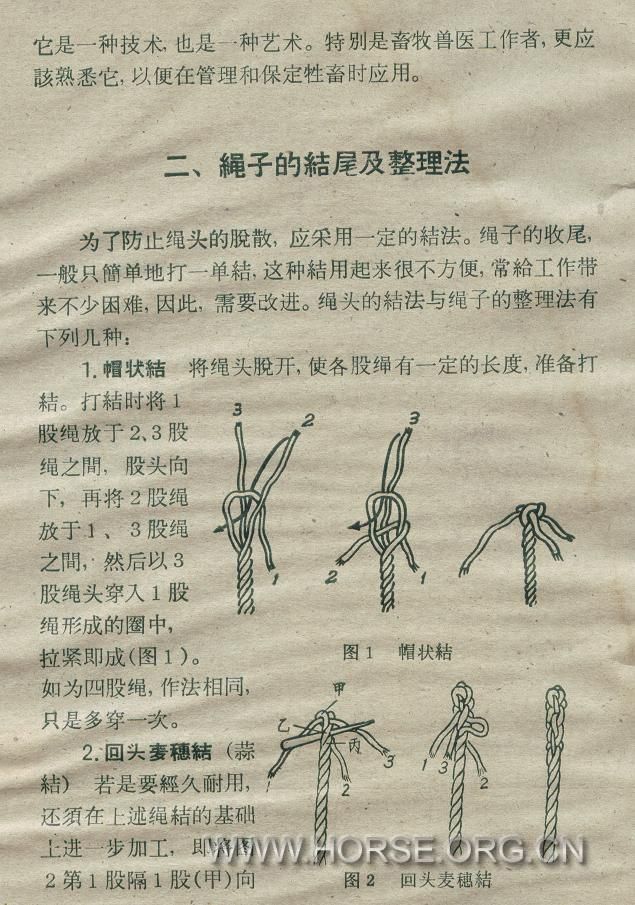 它是一种技术, 也是一种艺术。特別是畜牧兽医工作者, 更应
該熟悉它, 以便在管理和保定牲畜时应用。
二、繩子的結尾及整理法
为了防止绳头的脫散, 应采用一定的結法。绳子的收尾,
一般只簡单地打一单結, 这种結用起来很不方便, 常給工作带
来不少困难, 因此, 需要改进。绳头的結法与绳子的整理法有
下列几种:
1. 帽状結 将绳头脫开, 使各股绳有一定的长度, 准备打
結。打結时将1
股绳放于2、3股
绳之間, 股头向
下, 再将2股绳
放于1、3股绳
之間, 然后以3
股绳头穿入1股
绳形成的圈中,
拉紧即成(图1)。
如为四股绳, 作法相同,
只是多穿一次。
3
2
1
3
2
1
图1 帽状結
2. 回头麦穗結 (蒜
結) 若是要經久耐用,
还須在上述绳結的基础
上进一步加工, 即将图
2第1股隔1股(甲)向
甲
乙
丙
1
2
3
1
3
2
图2 回头麦穗結
WWW.HORSE.ORG.CN